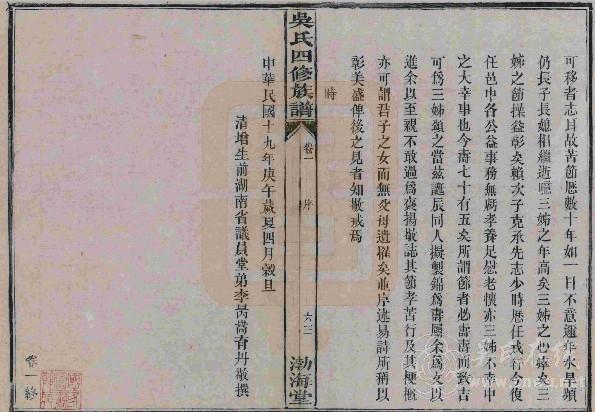 可移者志耳故苦節歷數十年如一日不意邇年水旱頻
仍長子長媳相繼逝噫三姊之年高矣三姊之心瘁矣三
姊之節操益彰矣賴次子克承先志少時歷任戎行今復
任邑中各公益事務無虧孝養足慰老懷亦三姊不幸中
之大幸事也今壽七十有五矣所謂節者必壽壽而致吉
可爲三姊頌之當茲誕辰同人擬製錦爲壽屬余爲文以
進余以至親不敢過爲褒揚敬誌其節孝苦行及其梗概
亦可謂君子之女而無父母遺罹矣並序述易詩所稱以
彰美盛俾後之見者知敬戒焉
時
中華民國十九年庚午歲夏四月穀旦
清增生前湖南省議員堂弟李芮喬有丹敬撰
吳氏四修族譜
卷一
序
六二
渤海堂
卷一終